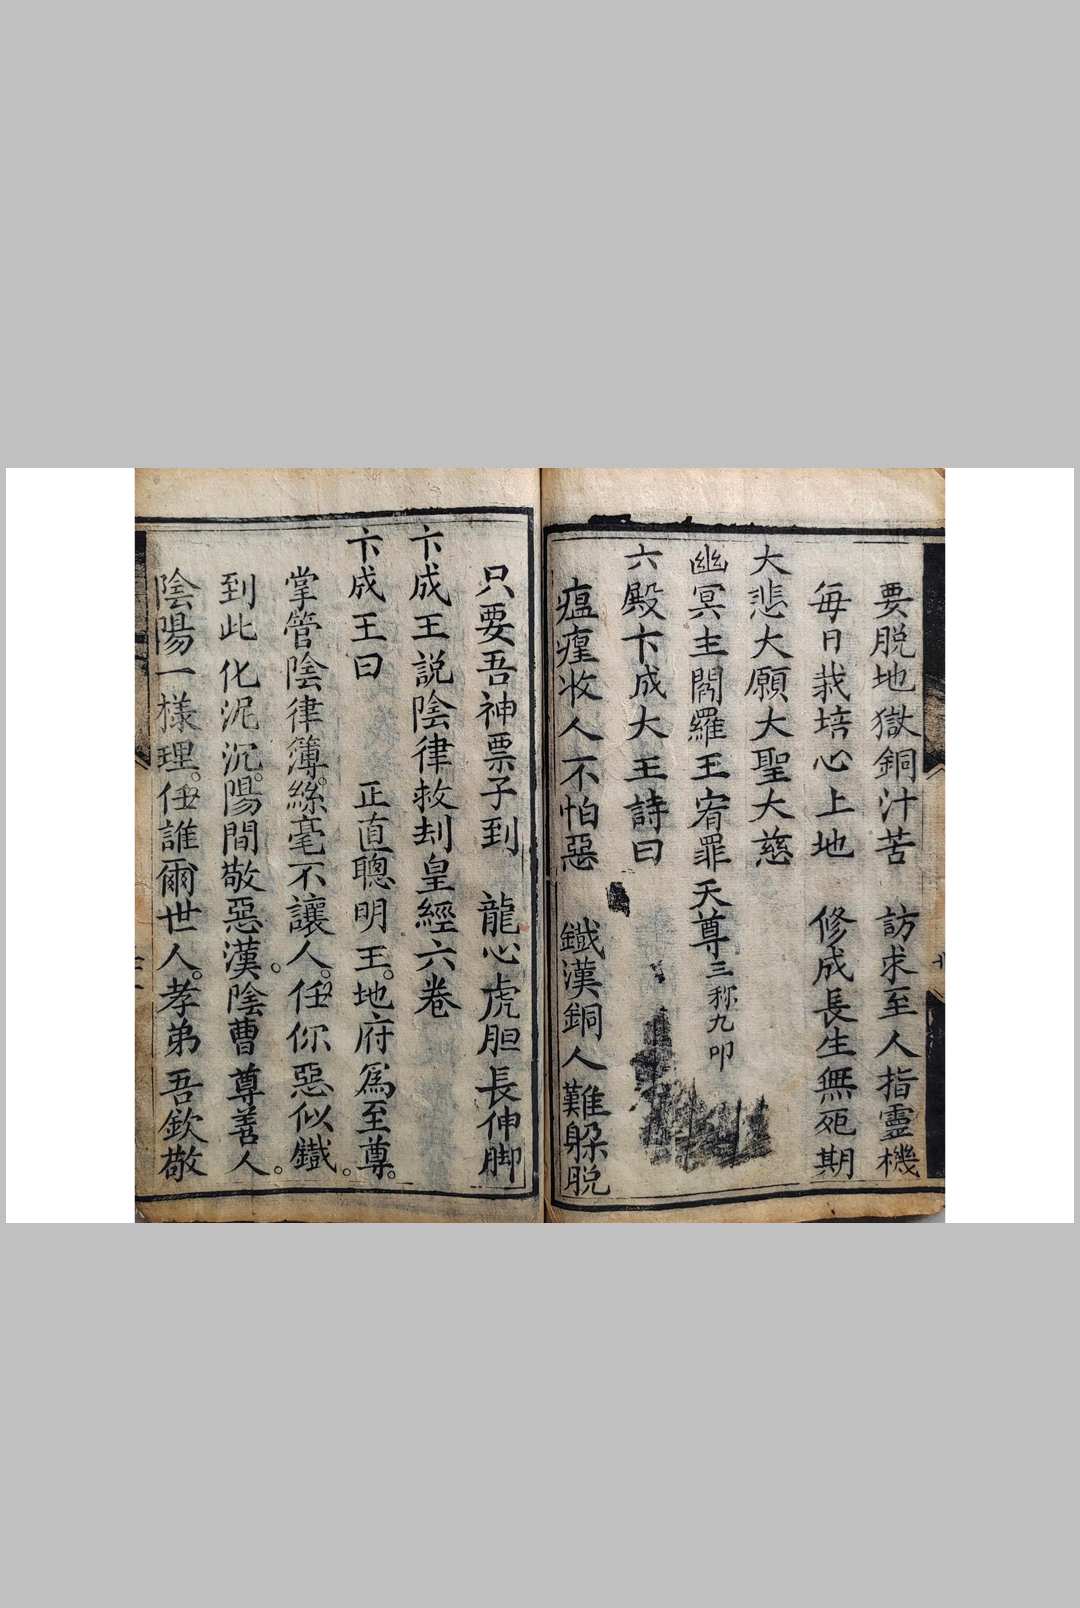 要脱地獄銅汁苦　訪求至人指靈機
每日栽培心上地　修成長生無死期
大悲大願大聖大慈
幽冥主閻羅王宥罪天尊三称九叩
六殿卞成大王詩曰
瘟㾮收人不怕惡　鐵漢銅人難躲脱
只要吾神票子到　龍心虎胆長伸脚
卞成王説陰律救刦皇經六卷
卞成王曰　　正直聰明王。地府爲至尊。
掌管陰律簿。絲毫不讓人。任你惡似鐵。
到此化泥沉。陽間敬惡漢。陰曹尊善人。
陰陽一樣理。任誰爾世人。孝弟吾欽敬